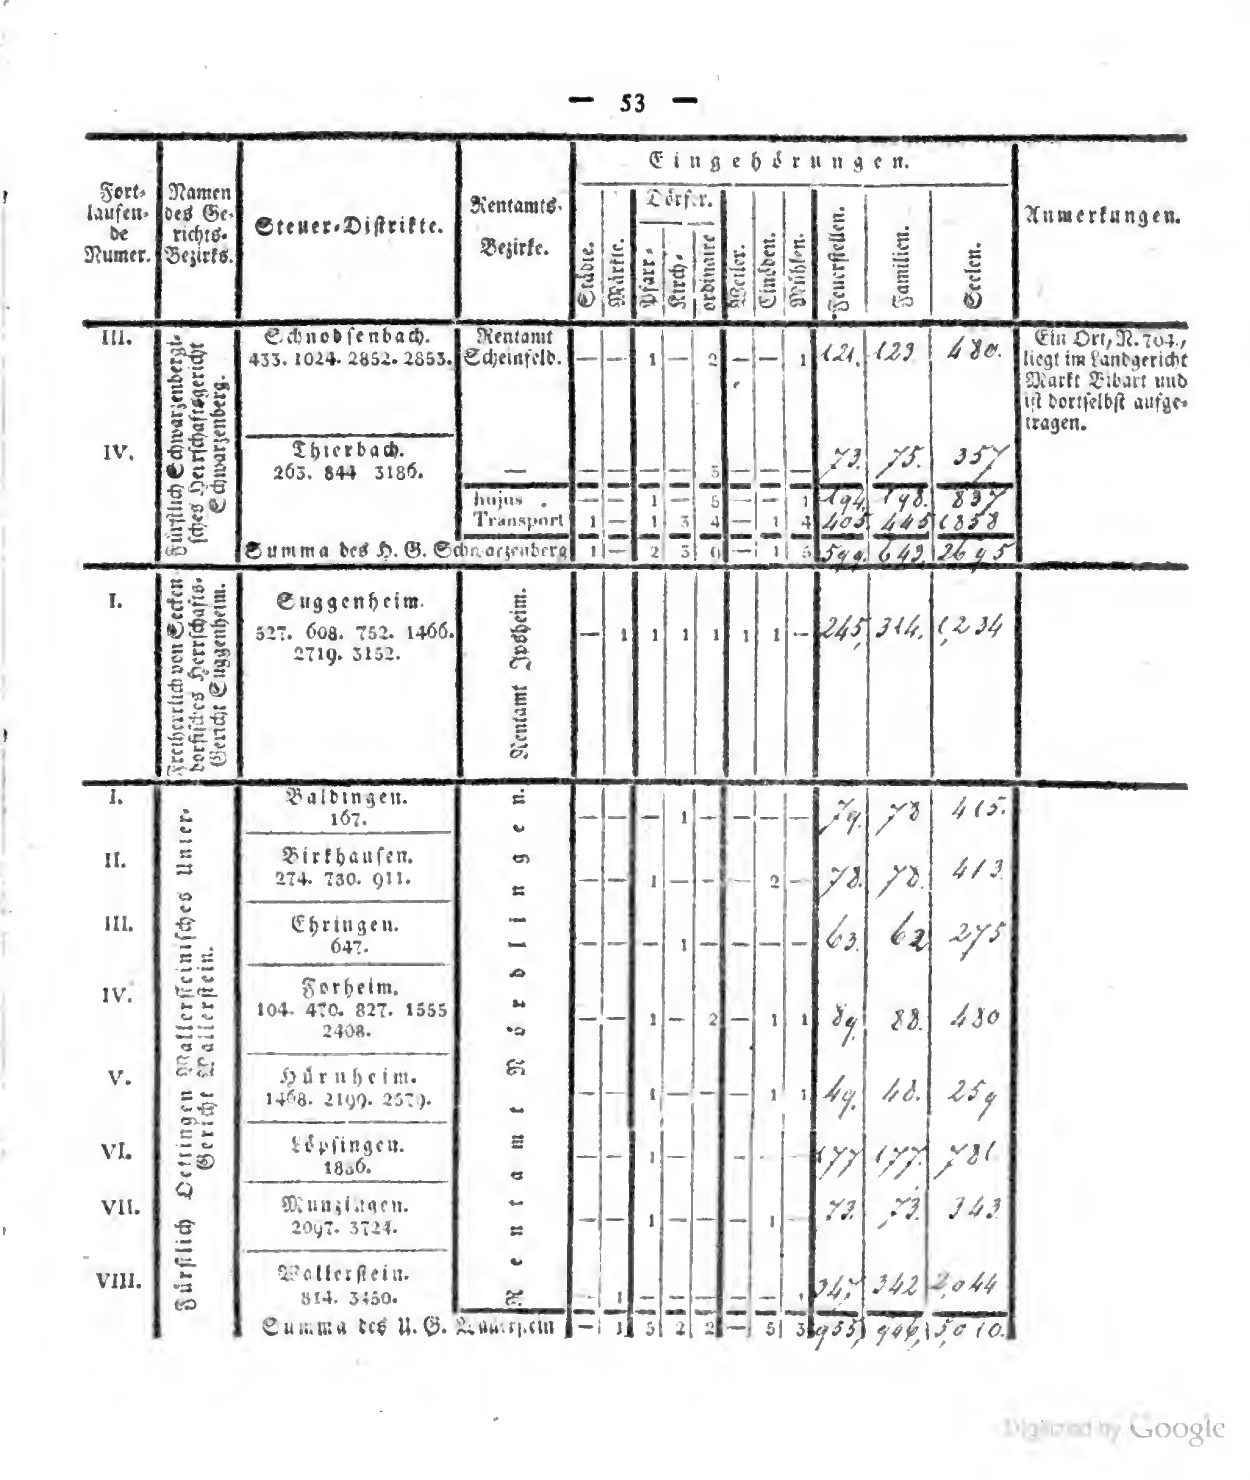 — 53 —
Fort-
laufen-
de
Numer.
Namen
des Ge-
richts-
Bezirks.
Steuer-Distrikte.
Rentamts-
Bezirke.
Eingehörungen.
Städte.
Märkte.
Dörfer.
Pfarr-
Kirch-
ordinaire
Weiler.
Einöden.
Mühlen.
Feuerstellen.
Familien.
Seelen.
Anmerkungen.
Fürstlich Schwarzenbergi-
sches Herrschaftsgericht
Schwarzenberg.
III. Schnodsenbach. Rentamt
433. 1024. 2852. 2853. Scheinfeld. — — 1 — 2 — — 1 121. 123. 480.
Ein Ort, N. 704.,
liegt im Landgericht
Markt Bibart und
ist dortselbst aufge-
tragen.
IV. Thierbach.
263. 844 3186. — — — — — 3 — — — 73. 75. 357
hujus . — — 1 — 5 — — 1 194. 198. 837
Transport 1 — 1 3 4 — 1 4 405. 445 1858
Summa des H. G. Schwarzenberg 1 — 2 3 9 — 1 5 599. 643. 2695
Freiherrlich von Secken
dorfisches Herrschafts-
Gericht Suggenheim.
I. Suggenheim.
527. 608. 752. 1466. — 1 1 1 1 1 1 — 245, 314, 1,234
2719. 3152.
Rentamt Ipsheim.
Fürstlich Oettingen Wallersteinisches Unter-
Gericht Wallerstein.
Rentamt Nördlingen.
I. Baldingen.
167. — — — 1 — — — — 79. 78 415.
II. Birkhausen.
274. 730. 911. — — 1 — — — 2 — 78. 78. 413
III. Ehringen.
647. — — — 1 — — — — 63. 62 275
IV. Forheim.
104. 470. 827. 1555 — — 1 — 2 — 1 1 89. 88. 480
2408.
V. Hürnheim.
1468. 2199. 2579. — — 1 — — — 1 1 49. 48. 259
VI. Löpsingen.
1836. — — 1 — — — — — 177 177. 781
VII. Munzingen.
2097. 3724. — — 1 — — — 1 — 73. 73. 343
VIII. Wallerstein.
814. 3450. — 1 — — — — — 1 347, 342 2,044
Summa des U. G. Wallerstein — 1 5 2 2 — 5 3 955, 946, 5,010.
Digitized by Google